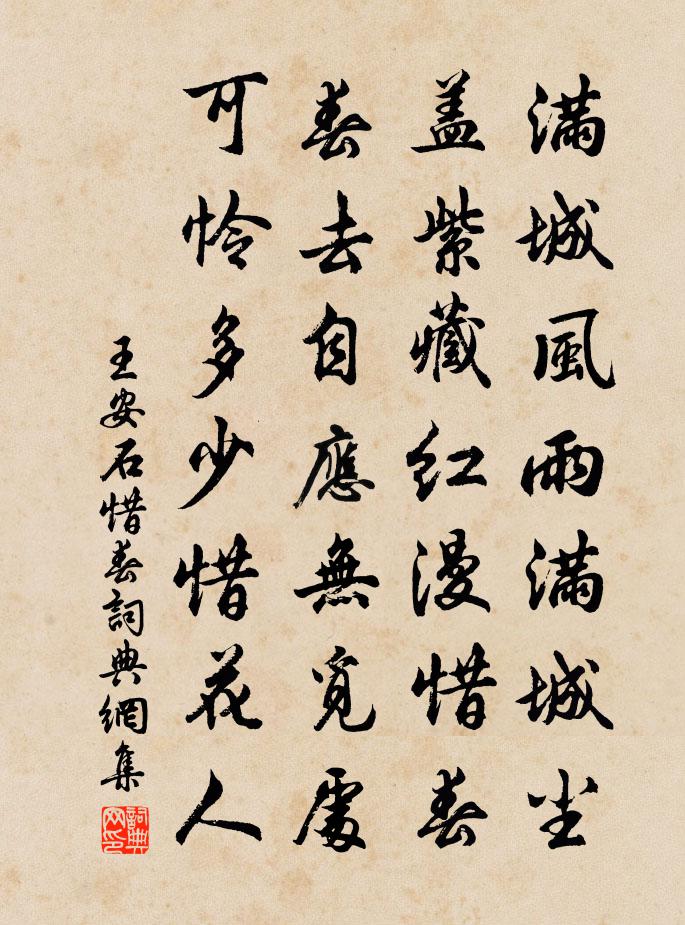 滿城風雨滿城尘
盖紫藏红漫惜春
春去自應無覓處
可怜多少惜花人
王安石惜春詞典網集
詞典网印